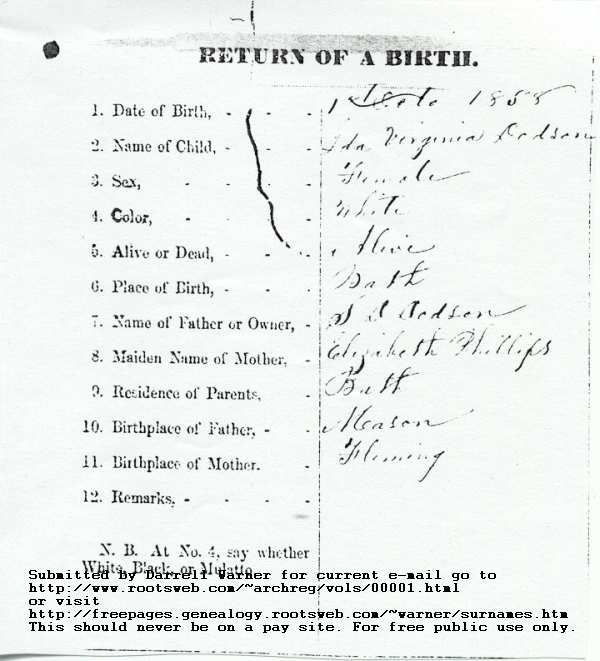 RETURN OF A BIRTH.
1. Date of Birth, - - - 1 Octo 1858
2. Name of Child, - - - Ida Virginia Dodson
3. Sex, - - - - Female
4. Color, - - - - White
5. Alive or Dead, - - - Alive
6. Place of Birth, - - - Bath
7. Name of Father or Owner, - S D Dodson
8. Maiden Name of Mother, - Elizabeth Phillips
9. Residence of Parents, - Bath
10. Birthplace of Father, - - Mason
11. Birthplace of Mother. - Fleming
12. Remarks, - - - -
N. B. At No. 4, say whether
White, Black, or Mulatto
Submitted by Darrell Warner for current e-mail go to
http://www.rootsweb.com/~archreg/vols/00001.html
or visit
http://freepages.genealogy.rootsweb.com/~warner/surnames.htm
This should never be on a pay site. For free public use only.